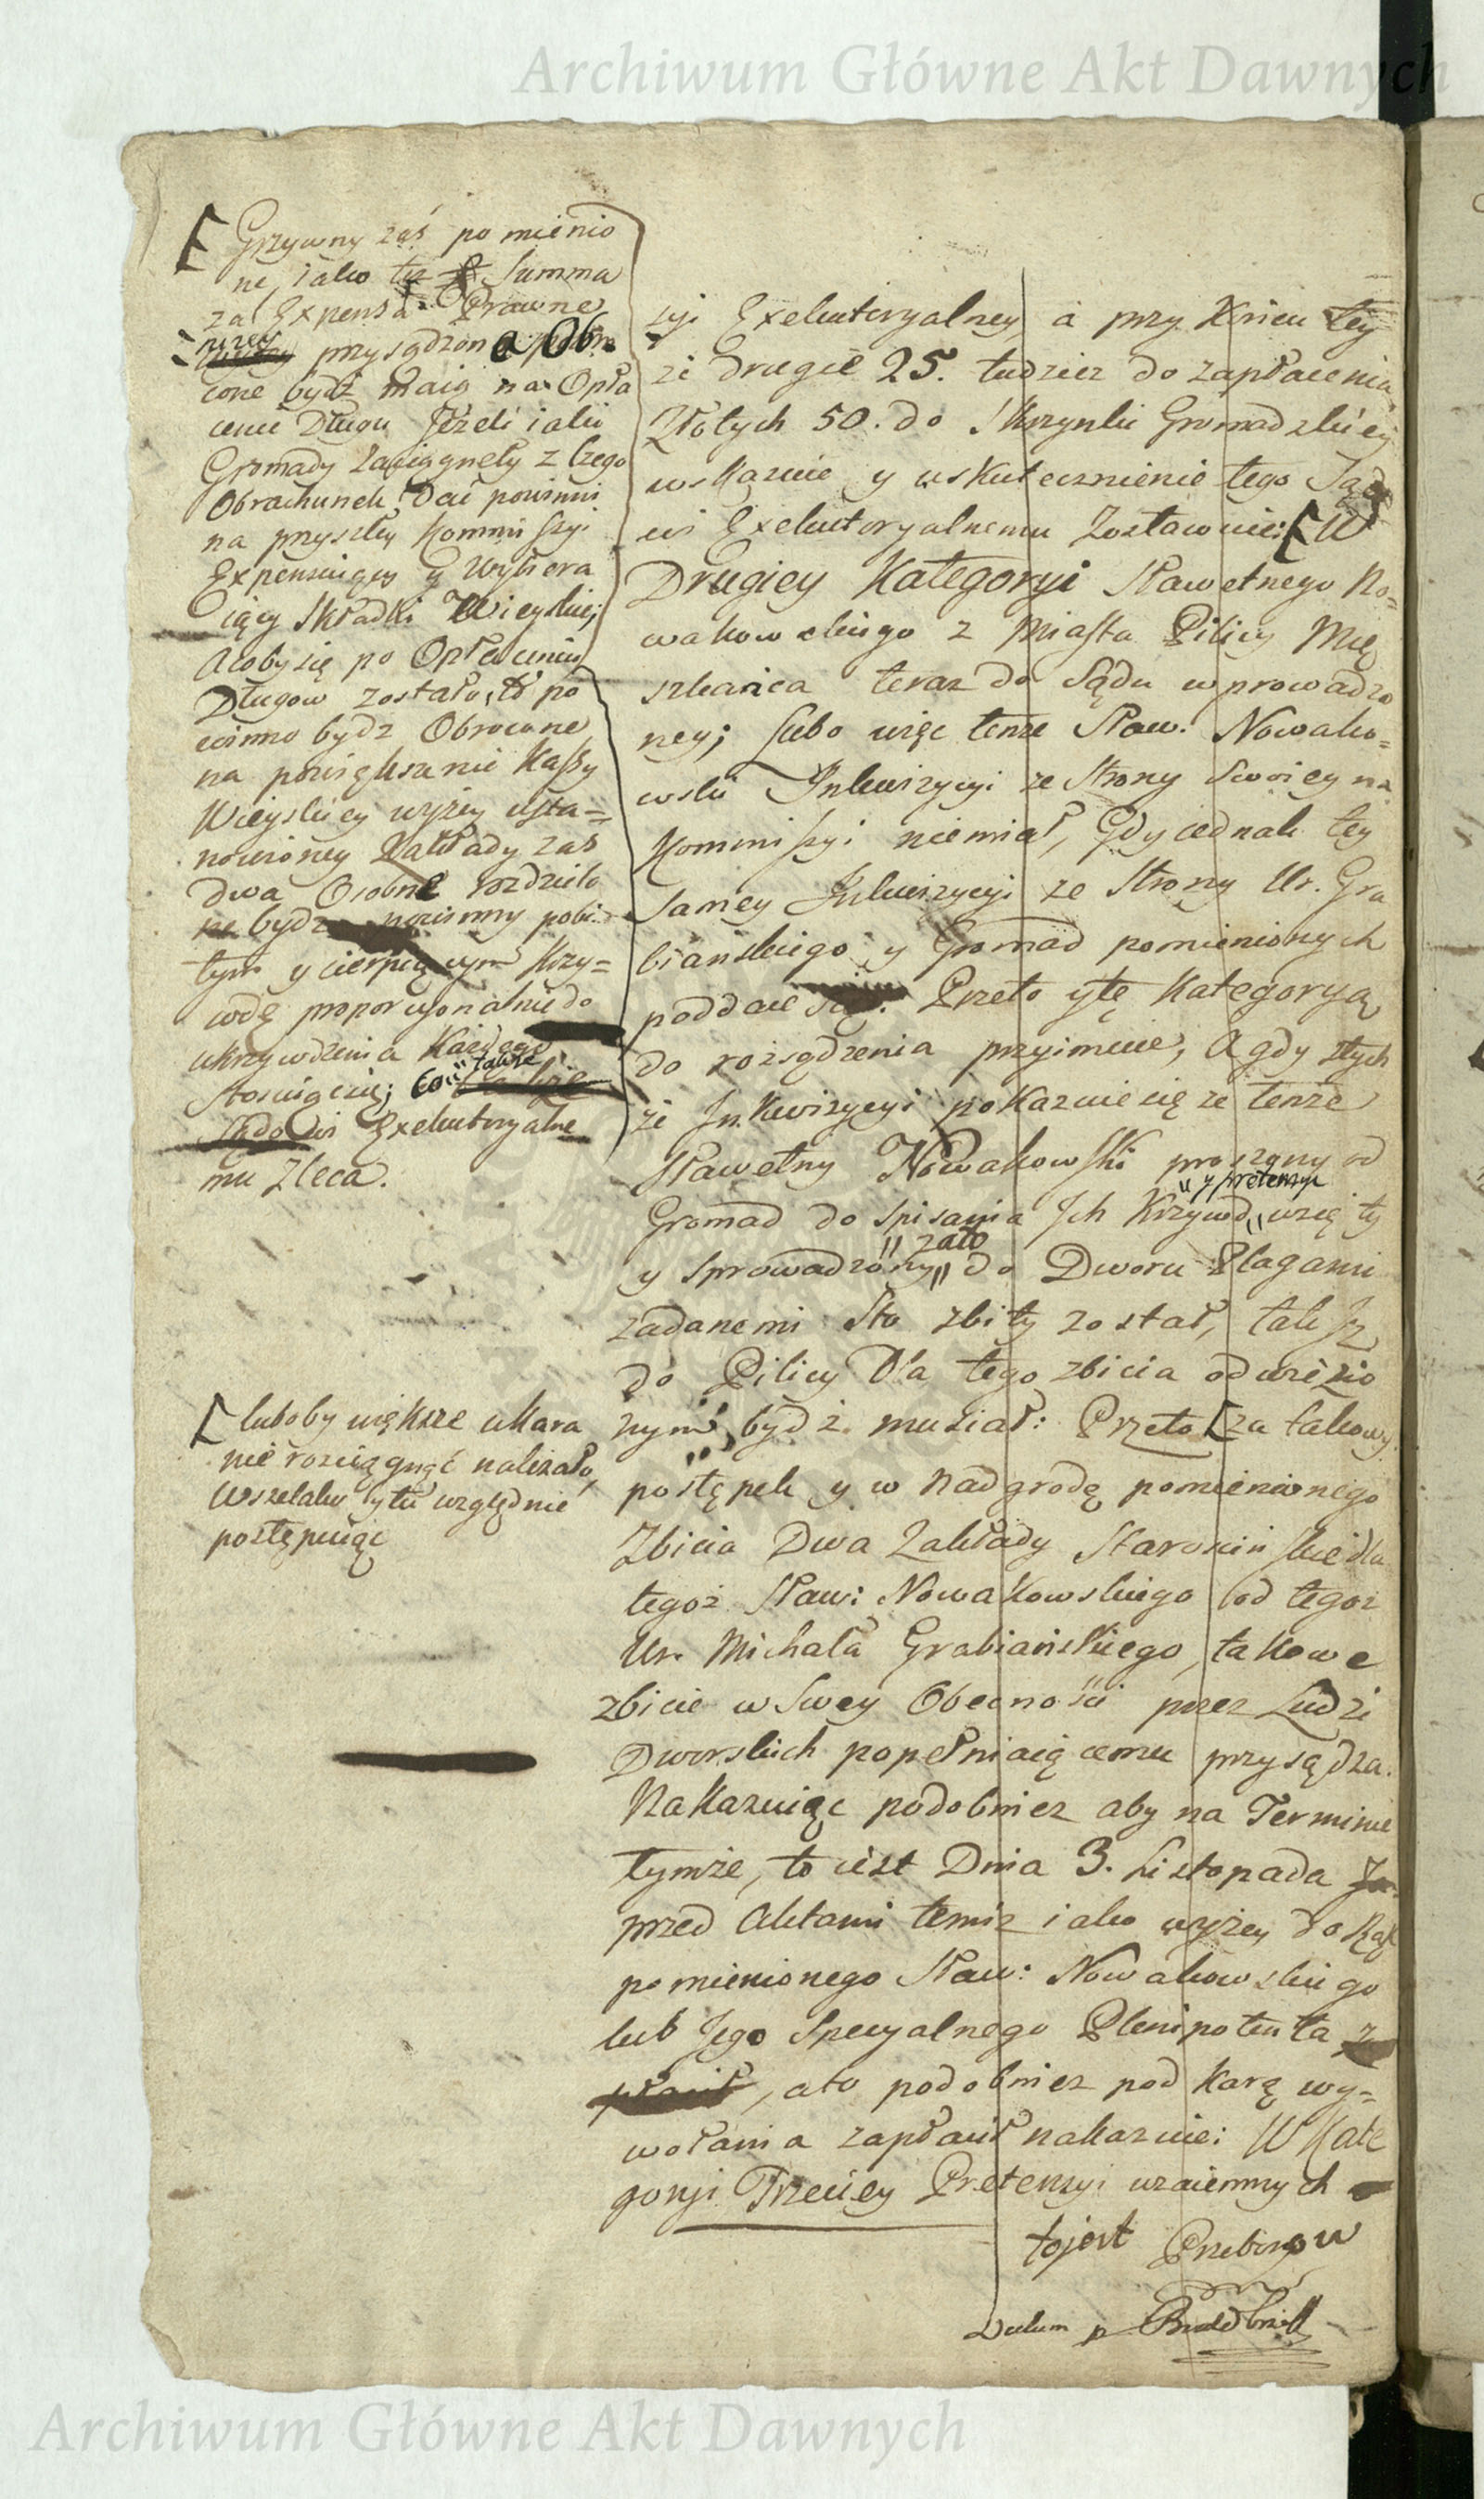 Archiwum Główne Akt Dawnych
Grzywny zaś pomienio
ne, iako też Summa
za Expensa Prawne
przez przysądzona Obro
cone bydź maią na Opła
cenie Długu Jeżeli iaki
Gromady zaciągnęły z czego
Obrachunek Dać powinni
na przyszłey Kommissyi
Expensuiący y Wybiera
iący Składki Wieyskiej
Acoby się po Opłaceniu
Długow zostało, to po
winno bydz Obrocone
na powiększenie Kassy
Wieyskiey wyżey usta=
nowioney Zakłady zaś
dwa Osobne rozdzielo
ne bydz powinny pobi
tym y cierpiącym Krzy=
wdę proporcyonalnie do
ukrzywdzenia Każdego
stosuiąc się; Co
Sądowi Exekutoryalne
mu Zleca.
luboby większe ukara
nie rozciągnąć należało,
Wszelako y tu względnie
postępuiąc
syi Exekutoryalney, a przy Końcu tey
że drugie 25. tudzież do zapłacenia
Złotych 50. do Skrzynki Gromadzkiey
wskazuie y uskutecznienie tego Sądo
wi Exekutoryalnemu Zostawuie: W
Drugiey Kategoryi Sławetnego No=
wakowskiego z Miasta Pilicy Mie
szkańca teraz do Sądu wprowadzo
ney; Lubo więc tenże Sław: Nowako=
wski Inkwizycyi ze Strony Swoiey na
Kommissyi niemiał, Gdy iednak tey
Samey Inkwizycyi ze Strony Ur. Gra
bianskiego y Gromad pomienionych
poddaie się: Przeto y tę Kategoryą
do rozsądzenia przyimuie, A gdy z tych
że Inkwizycyi pokazuie się ze tenże
Sławetny Nowakowski proszony od
y pretensyi
Gromad do spisania Ich Krzywd wzięty
zato
y Sprowadzony do Dworu Plagami
zadanemi Sto zbity został, tak Iż
do Pilicy Dla tego zbicia odwiezio
nym bydź musiał: Przeto za takowy
postępek y w Nadgrodę pomienionego
Zbicia Dwa Zakłady Staroscinskie dla
tegoż Sław: Nowakowskiego od tegoż
Ur. Michała Grabiańskiego, takowe
zbicie w Swey Obecności przez Ludzi
Dworskich popełniaiącemu przysądza.
Nakazuiąc podobniez aby na Terminie
tymże, to iest Dnia 3. Listopada
przed Aktami temiz iako wyżey do Rąk
pomienionego Sław: Nowakowskiego
lub Jego Specyalnego Plenipotenta
, ato podobniez pod Karą wy=
wołania zapłacił nakazuie: W Kate
goryi Trzeciey Pretensyi wzaiemnych
tojest
Archiwum Główne Akt Dawnych